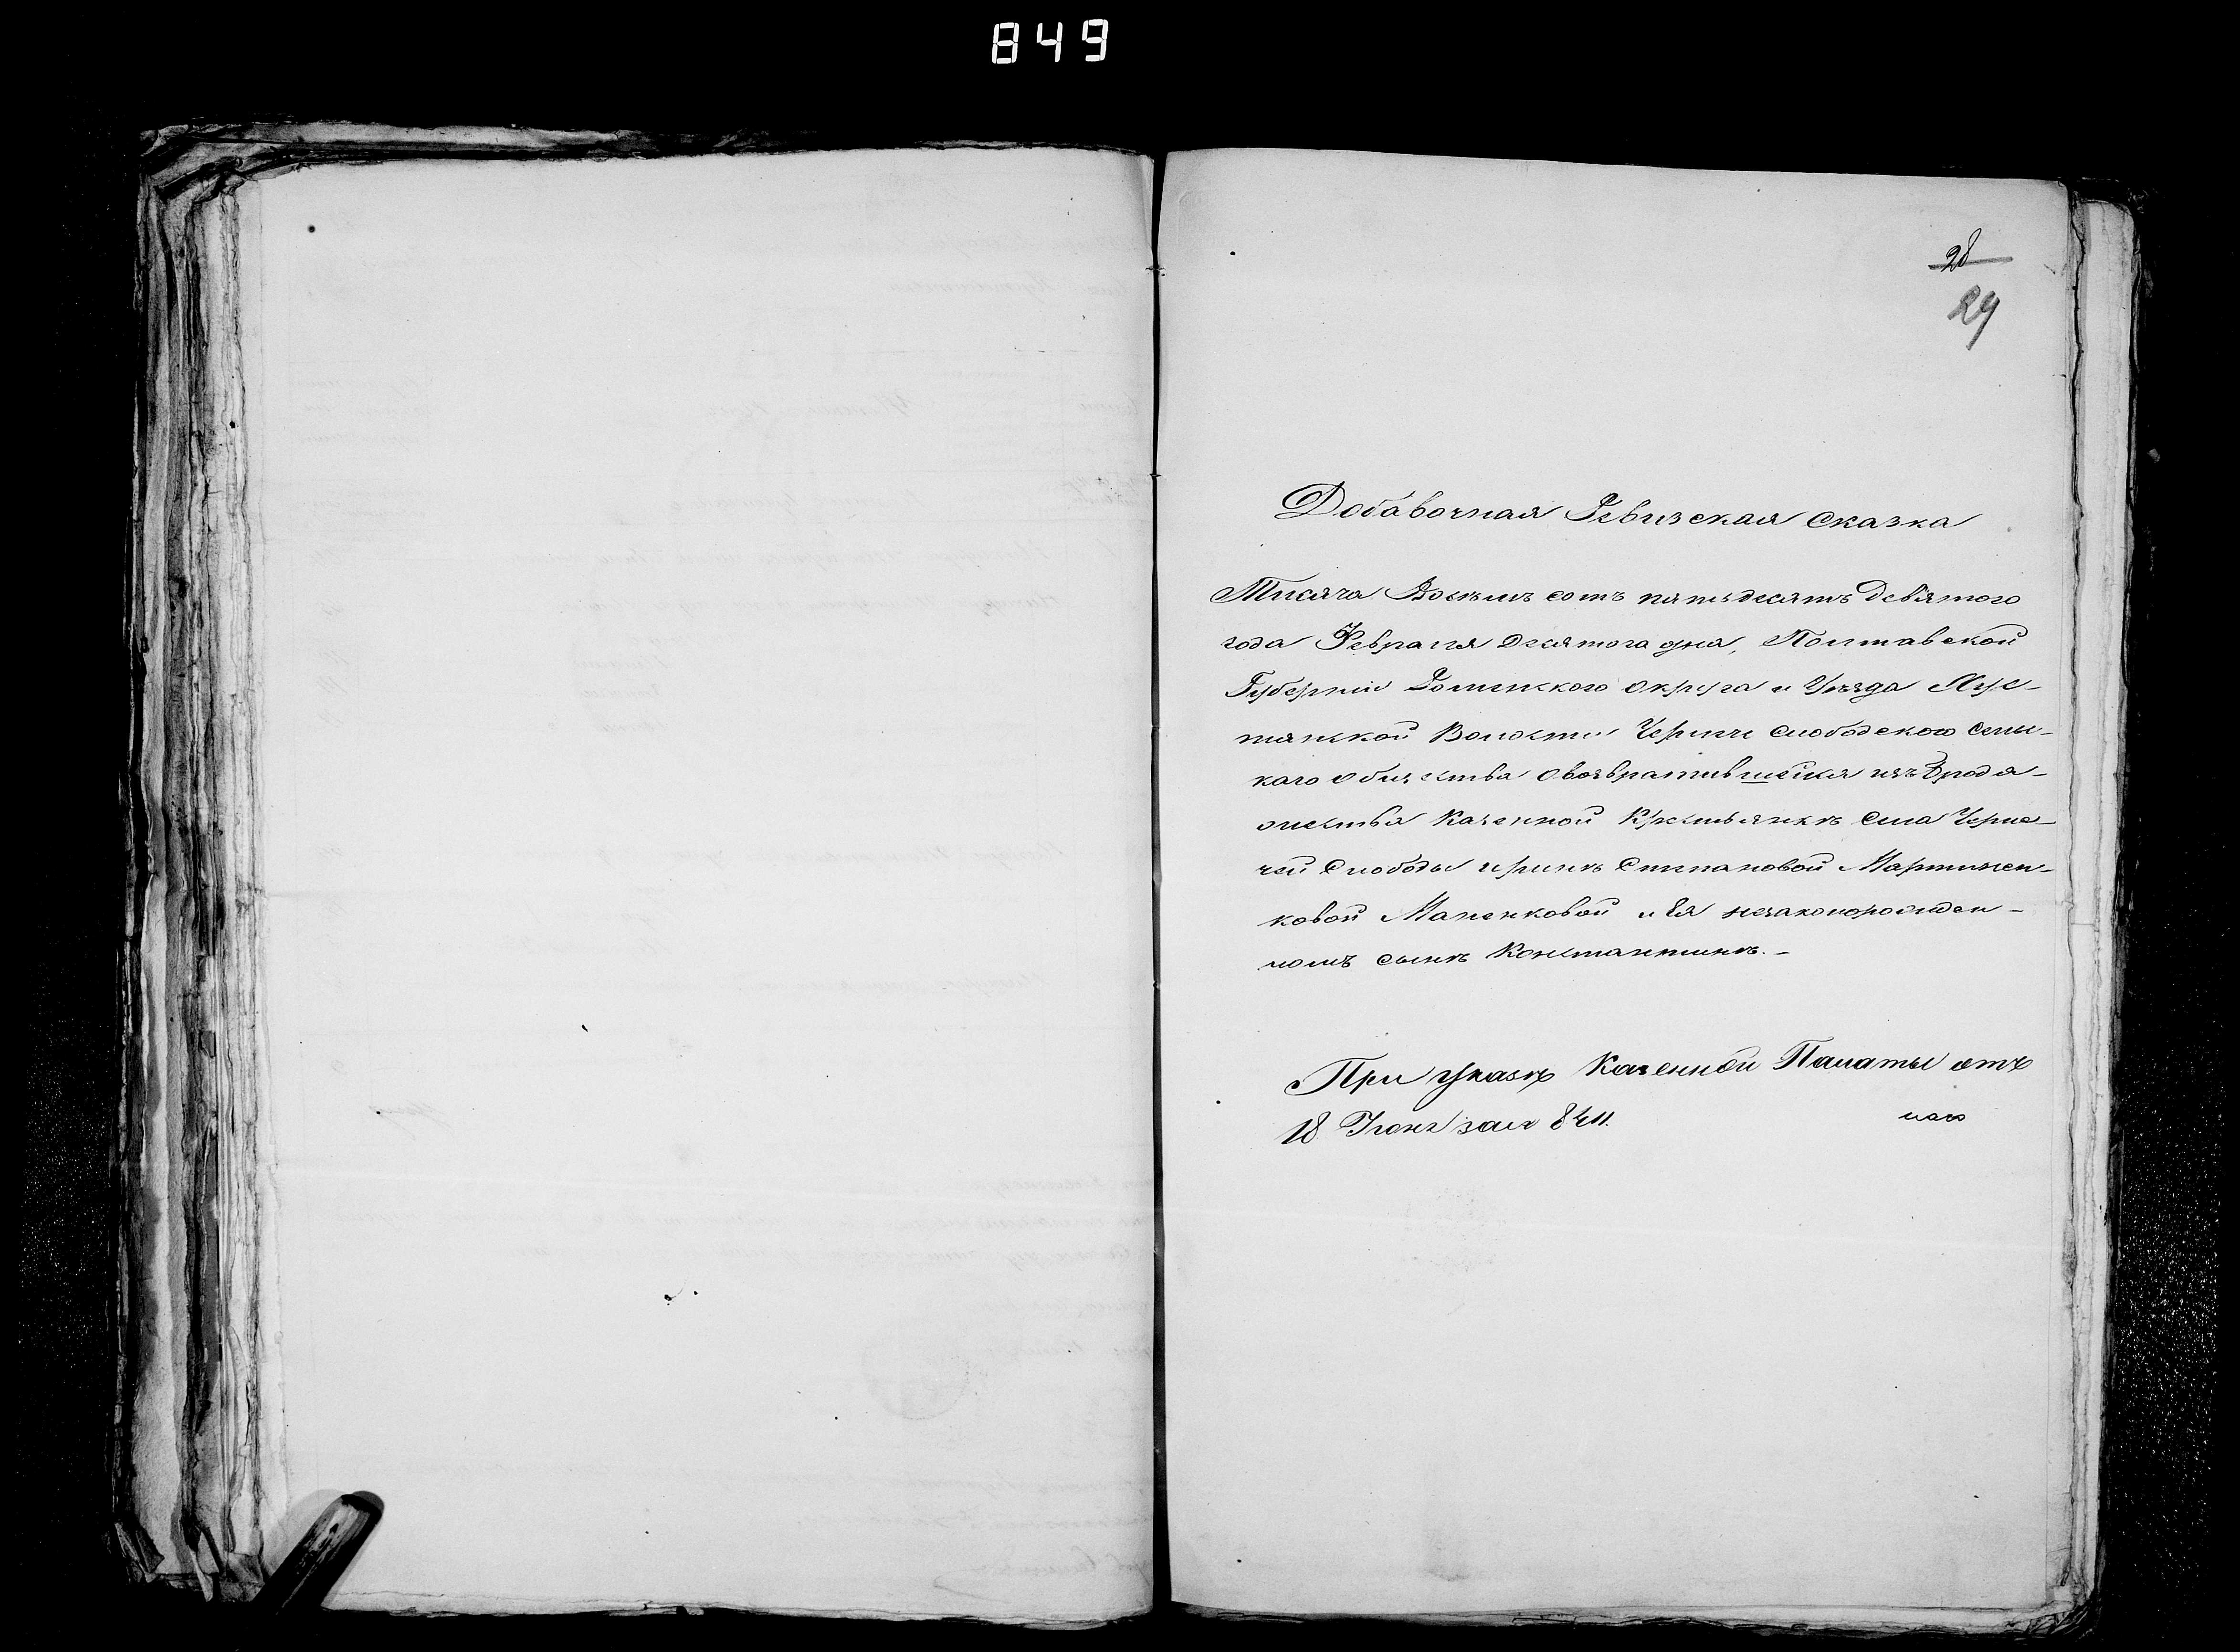 849
28
29
Добавочная Ревизская сказка
Тисяча Восемь сотъ пятьдесятъ девятого
года Февраля десятого дня, Полтавской
Губерніи Роменского округа и Уѣзда Пус-
танской Волости Чернече Слободского сель-
каго общества о возвратившейся изъ брод я-
жества Казенной Крестьянкѣ села Черне-
чей Слободы Иринѣ Степановой Мартинен-
ковой Маленковой и Ея незаконорожден-
номъ сынѣ Константинѣ.
При указѣ Казенной Палаты отъ
18 Іюня за № 8411.